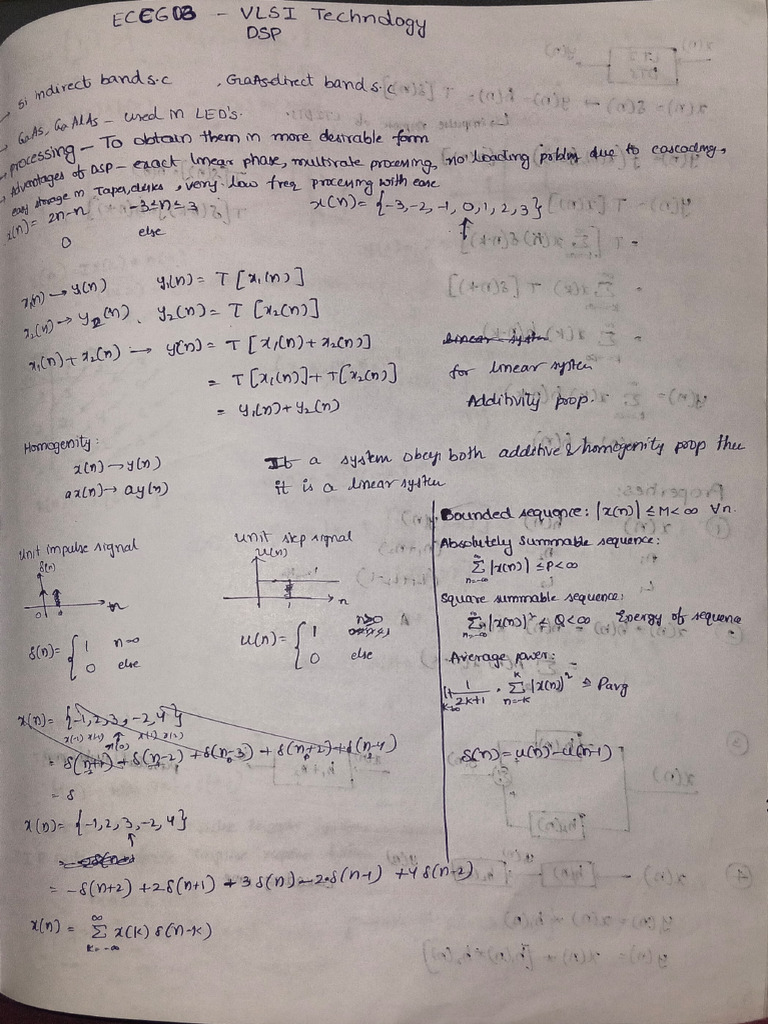 ECEG03 - VLSI Technology
DSP
→ Si indirect band s.c , GaAs-direct band s.c
→ GaAs, GaAlAs - used in LED's.
→ processing - To obtain them in more desirable form
→ Advantages of DSP - exact linear phase, multirate processing, no loading problem due to cascading,
easy storage in Tapes, disks, very low freq processing with ease
x(n) = 2n-n -3≤n≤3 x(n) = {-3,-2,-1,0,1,2,3}
0 else ↑
x1(n) → y(n) y1(n) = T[x1(n)]
x2(n) → y2(n) y2(n) = T[x2(n)]
x1(n)+x2(n) → y(n) = T[x1(n)+x2(n)] Linear system
= T[x1(n)]+T[x2(n)] for linear system
= y1(n)+y2(n) Additivity prop.
Homogenity:
x(n) → y(n) If a system obeys both additive & homogenity prop then
ax(n) → ay(n) it is a linear system
Bounded sequence: |x(n)| ≤ M < ∞ ∀n.
Absolutely summable sequence:
∞
Σ |x(n)| ≤ P < ∞
n=-∞
Square summable sequence:
∞
Σ |x(n)|² ≤ Q < ∞ Energy of sequence
n=-∞
Average power:
lt 1/2K+1 . Σ |x(n)|² ≜ Pavg
K→∞ n=-K K
δ(n) = u(n) - u(n-1)
unit impulse signal unit step signal
δ(n) u(n)
0 n 1 n
δ(n) = { 1 n=0 u(n) = { 1 n≥0
0 else 0 else
x(n) = {-1,2,3,-2,4}
x(-2) x(-1) x(0) x(1) x(2)
= δ(n+1)+δ(n-2)+δ(n-3)+δ(n+2)+δ(n-4)
= δ
x(n) = {-1,2,3,-2,4}
↑
= -δ(n+2) +2δ(n+1) +3δ(n) -2δ(n-1) +4δ(n-2)
∞
x(n) = Σ x(k) δ(n-k)
k=-∞